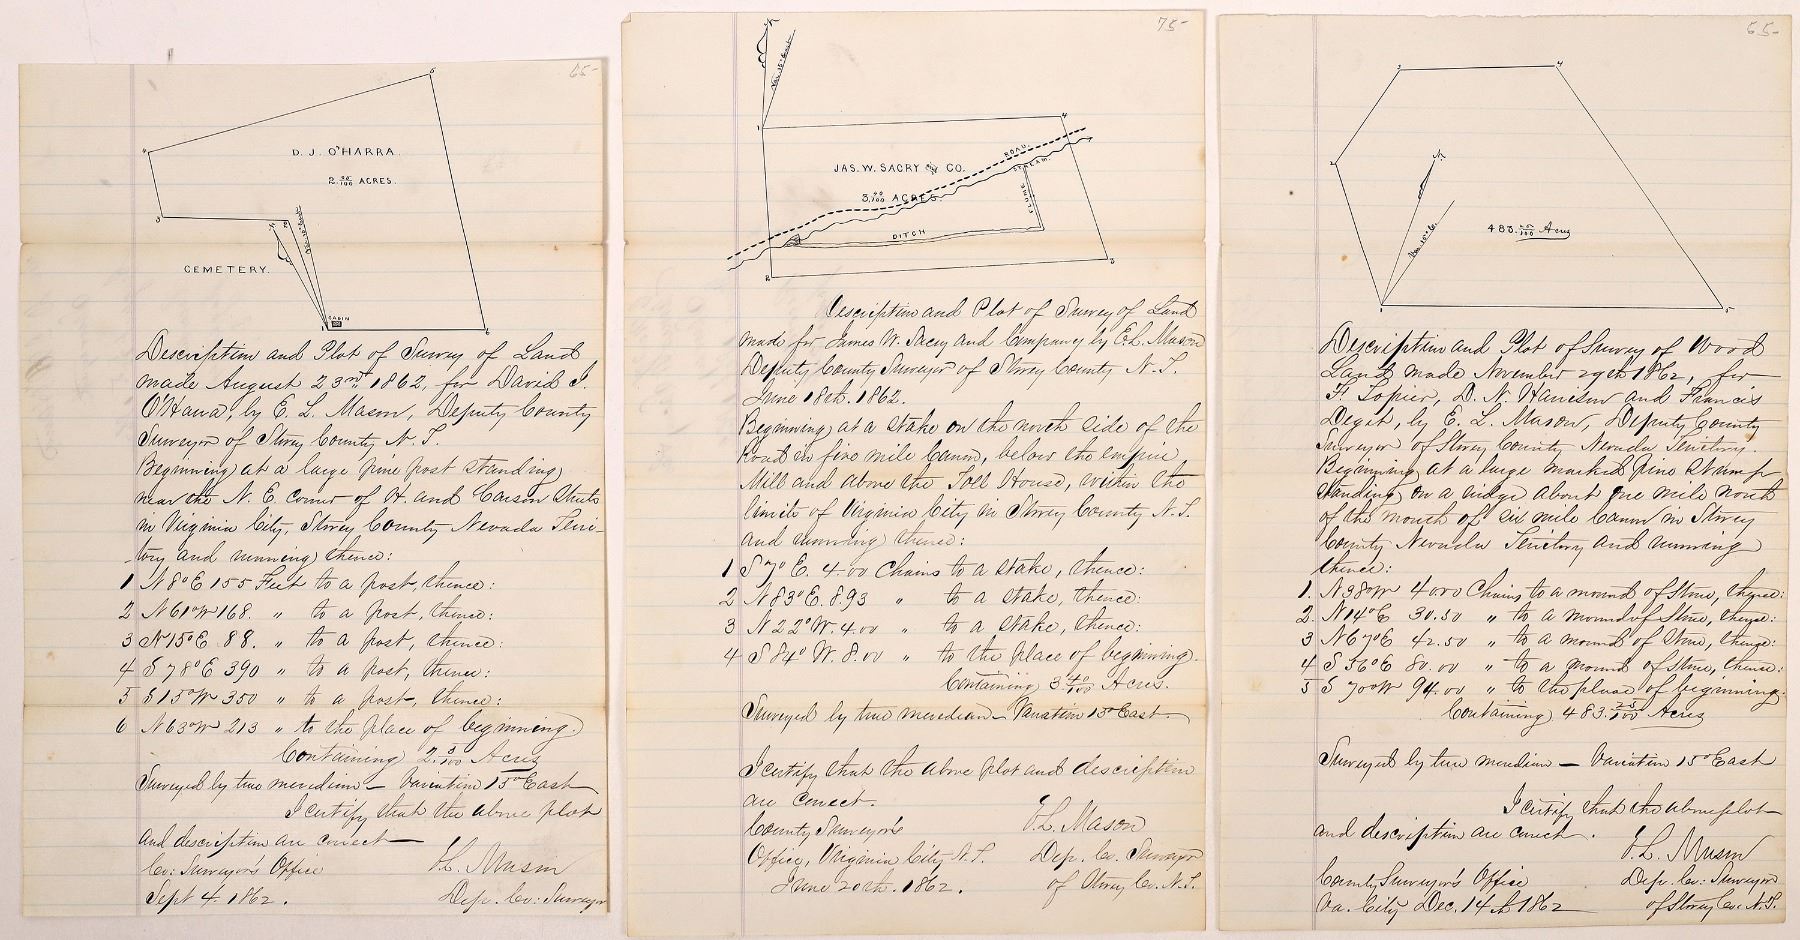 65-
5
D. J. O'HARRA.
2 30/100 ACRES.
4
3
2
CEMETERY.
Var. 15° East
CABIN
1
6
Description and Plot of Survey of Land
made August 23rd, 1862, for David J.
O'Harra, by E. L. Mason, Deputy County
Surveyor of Storey County N. T.
Beginning at a large pine post standing
near the N. E. corner of H. and Carson Streets
in Virginia City, Storey County Nevada Terri-
-tory and running thence:
1 N 8° E 155 Feet to a post, thence:
2 N 61° W 168. " to a post, thence:
3 N 15° E. 88. " to a post, thence:
4 S 78° E 390 " to a post, thence:
5 S 15° W 350 " to a post, thence:
6 N 63° W 213 " to the place of beginning.
Containing 2. 3/100 Acres
Surveyed by true meridian – Variation 15° East
I certify that the above plot
and description are correct
Co: Surveyor's Office
E. L. Mason
Sept 4. 1862.
Dep. Co: Surveyor
75-
Var. 15° East
1
4
JAS. W. SACRY and CO.
3 40/100 ACRES.
ROAD.
STREAM.
FLUME
DITCH
2
3
Description and Plot of Survey of Land
made for James W. Sacry and Company by E. L. Mason
Deputy County Surveyor of Storey County N. T.
June 18th. 1862.
Beginning at a stake on the north side of the
Road in five mile Canon, below the empire
Mill and above the Toll House, within the
limits of Virginia City in Storey County N. T.
and running thence:
1 S 7° E. 4.00 Chains to a stake, thence:
2 N 83° E. 8.93 " to a stake, thence:
3 N 22° W. 4.00 " to a stake, thence:
4 S 84° W. 8.00 " to the place of beginning.
Containing 3 40/100 Acres.
Surveyed by true meridian – Variation 15° East.
I certify that the above plot and description
are correct.
County Surveyor's
E. L. Mason
Office, Virginia City N. T.
Dep. Co. Surveyor
June 20th. 1862.
of Storey Co. N. T.
65-
3
4
2
Var. 15° E.
483. 25/100 Acres
1
5
Description and Plot of Survey of Wood
Land made November 29th 1862, for
F. Lopier, D. N. Harrison and Francis
Degit, by E. L. Mason, Deputy County
Surveyor of Storey County Nevada Territory.
Beginning at a large marked pine stump
standing on a ridge about one mile north
of the mouth of six mile Canon in Storey
County Nevada Territory and running
thence:
1. N 38° W 40.00 Chains to a mound of stone, thence:
2. N 14° E 30.50 " to a mound of stone, thence:
3 N 67° E 42.50 " to a mound of stone, thence:
4 S 56° E 80.00 " to a mound of stone, thence:
5 S 70° W 94.00 " to the place of beginning.
Containing 483. 25/100 Acres
Surveyed by true meridian – Variation 15° East
I certify that the above plot
and description are correct.
E. L. Mason
County Surveyor's Office
Dep. Co: Surveyor
Va. City Dec. 14th 1862
of Storey Co. N. T.